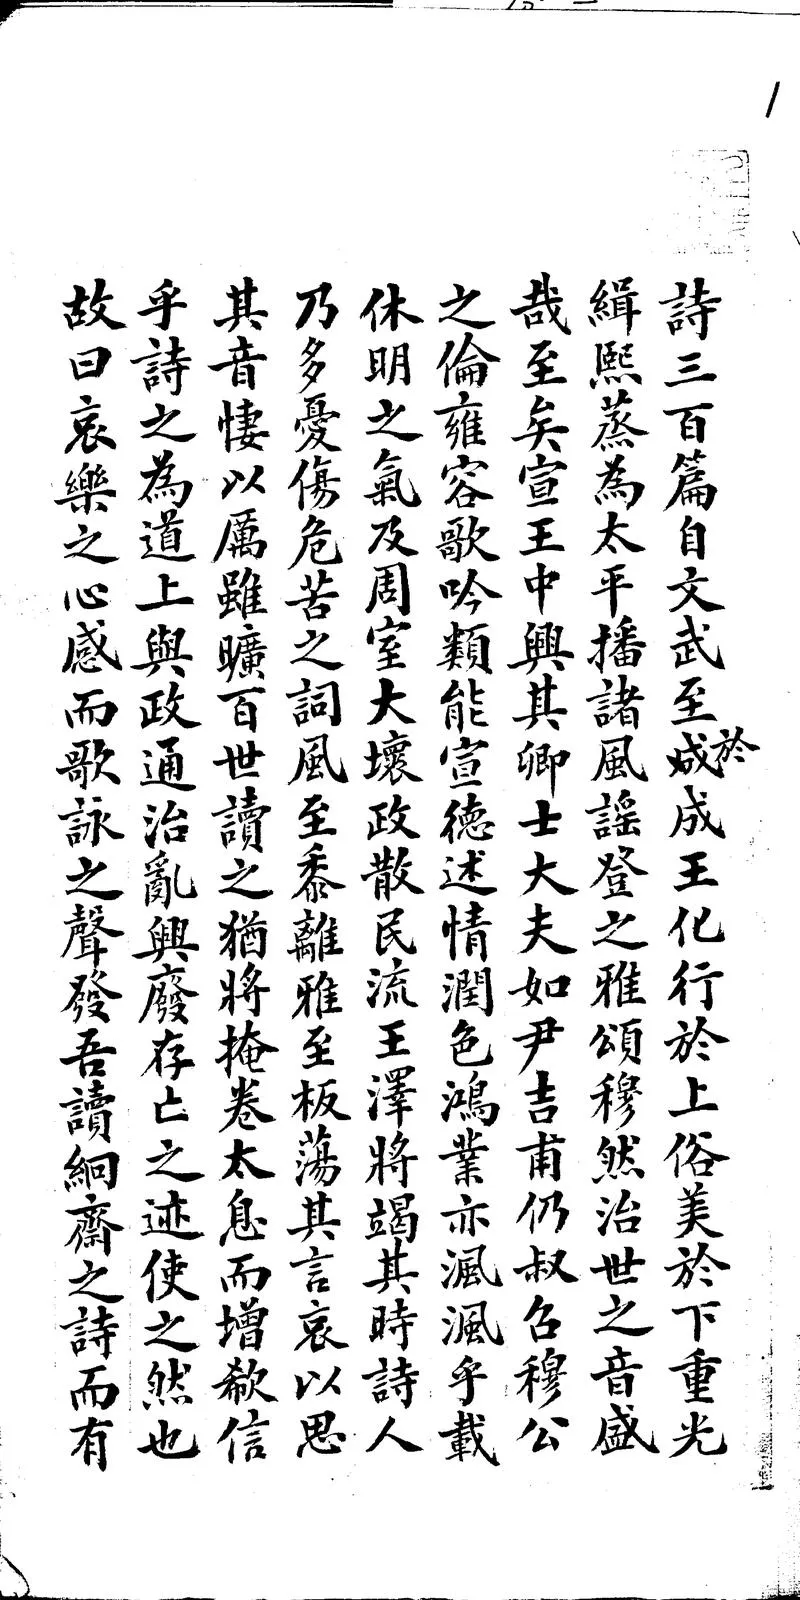 詩三百篇自文武至於成王化行於上俗美於下重光
緝熙蒸為太平播諸風謠登之雅頌穆然治世之音盛
哉至矣宣王中興其卿士大夫如尹吉甫仍叔召穆公
之倫雍容歌吟類能宣德述情潤色鴻業亦渢渢乎載
休明之氣及周室大壞政散民流王澤將竭其時詩人
乃多憂傷危苦之詞風至黍離雅至板蕩其言哀以思
其音悽以厲雖曠百世讀之猶將掩卷太息而增欷信
乎詩之為道上與政通治亂興廢存亡之迹使之然也
故曰哀樂之心感而歌詠之聲發吾讀絅齋之詩而有